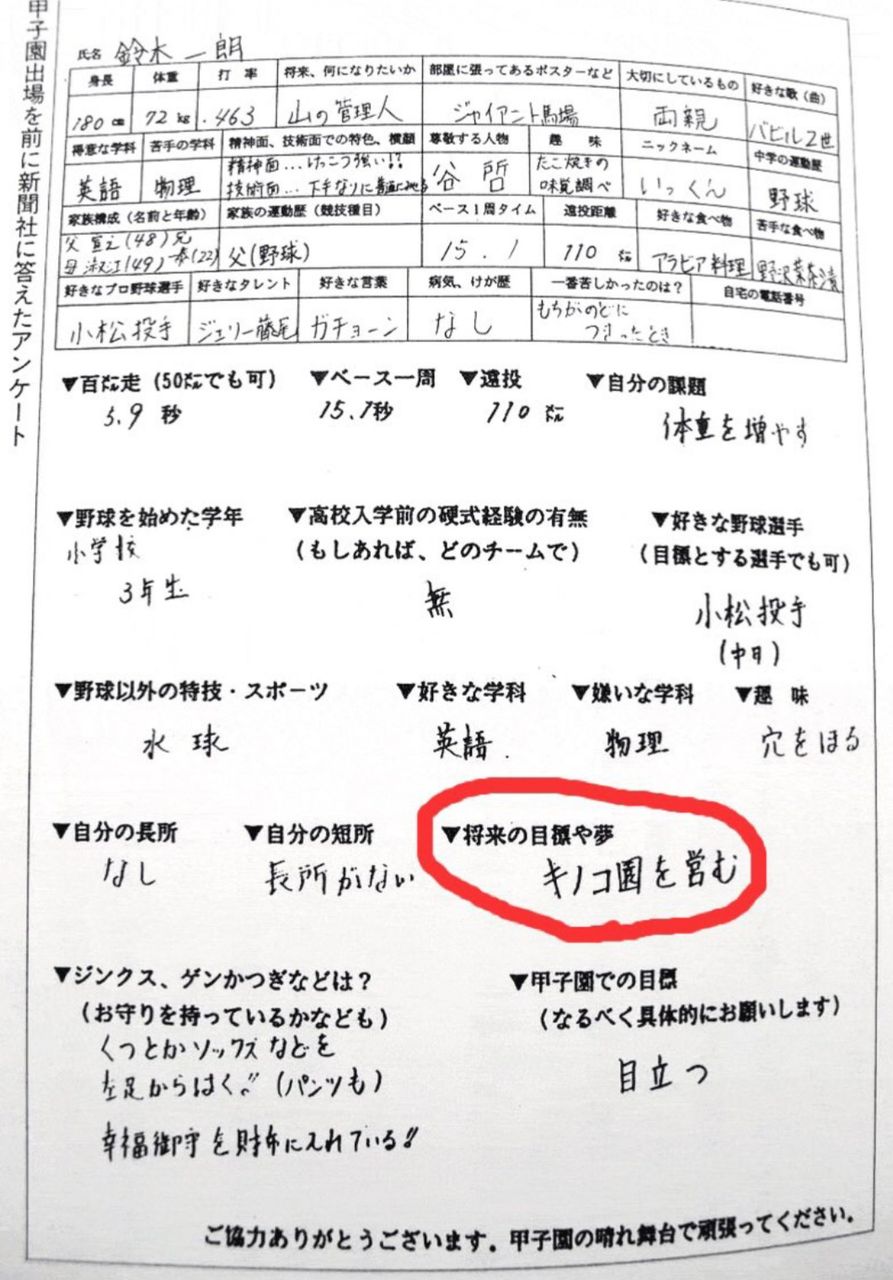 甲子園出場を前に新聞社に答えたアンケート
氏名 鈴木一朗
身長 体重 打率 将来、何になりたいか 部屋に張ってあるポスターなど 大切にしているもの 好きな歌(曲)
180cm 72kg .463 山の管理人 ジャイアント馬場 両親 バビル2世
得意な学科 苦手の学科 精神面、技術面での特色、横顔 尊敬する人物 趣味 ニックネーム 中学の運動歴
英語 物理 精神面…けっこう強い!? 谷 哲 たこ焼きの いっくん 野球
技術面…下手なりに 味覚調べ
家族構成(名前と年齢) 家族の運動歴(競技種目) ベース1周タイム 遠投距離 好きな食べ物 苦手な食べ物
父 宣之(48)兄 父(野球) 15.1 110㍍ アラビア料理 野沢菜茶漬
母 淑江(49)一泰(22)
好きなプロ野球選手 好きなタレント 好きな言葉 病気、けが歴 一番苦しかったのは? 自宅の電話番号
小松投手 ジェリー藤尾 ガチョーン なし もちがのどに
つまったとき
▼百㍍走(50㍍でも可) ▼ベース一周 ▼遠投 ▼自分の課題
5.9秒 15.1秒 110㍍ 体重を増やす
▼野球を始めた学年 ▼高校入学前の硬式経験の有無 ▼好きな野球選手
小学校 (もしあれば、どのチームで) (目標とする選手でも可)
3年生 無 小松投手
(中日)
▼野球以外の特技・スポーツ ▼好きな学科 ▼嫌いな学科 ▼趣味
水球 英語 物理 穴をほる
▼自分の長所 ▼自分の短所 ▼将来の目標や夢
なし 長所がない キノコ園を営む
▼ジンクス、ゲンかつぎなどは? ▼甲子園での目標
(お守りを持っているかなども) (なるべく具体的にお願いします)
くつとかソックスなどを
左足からはく!! (パンツも) 目立つ
幸福御守を財布に入れている!!
ご協力ありがとうございます。甲子園の晴れ舞台で頑張ってください。